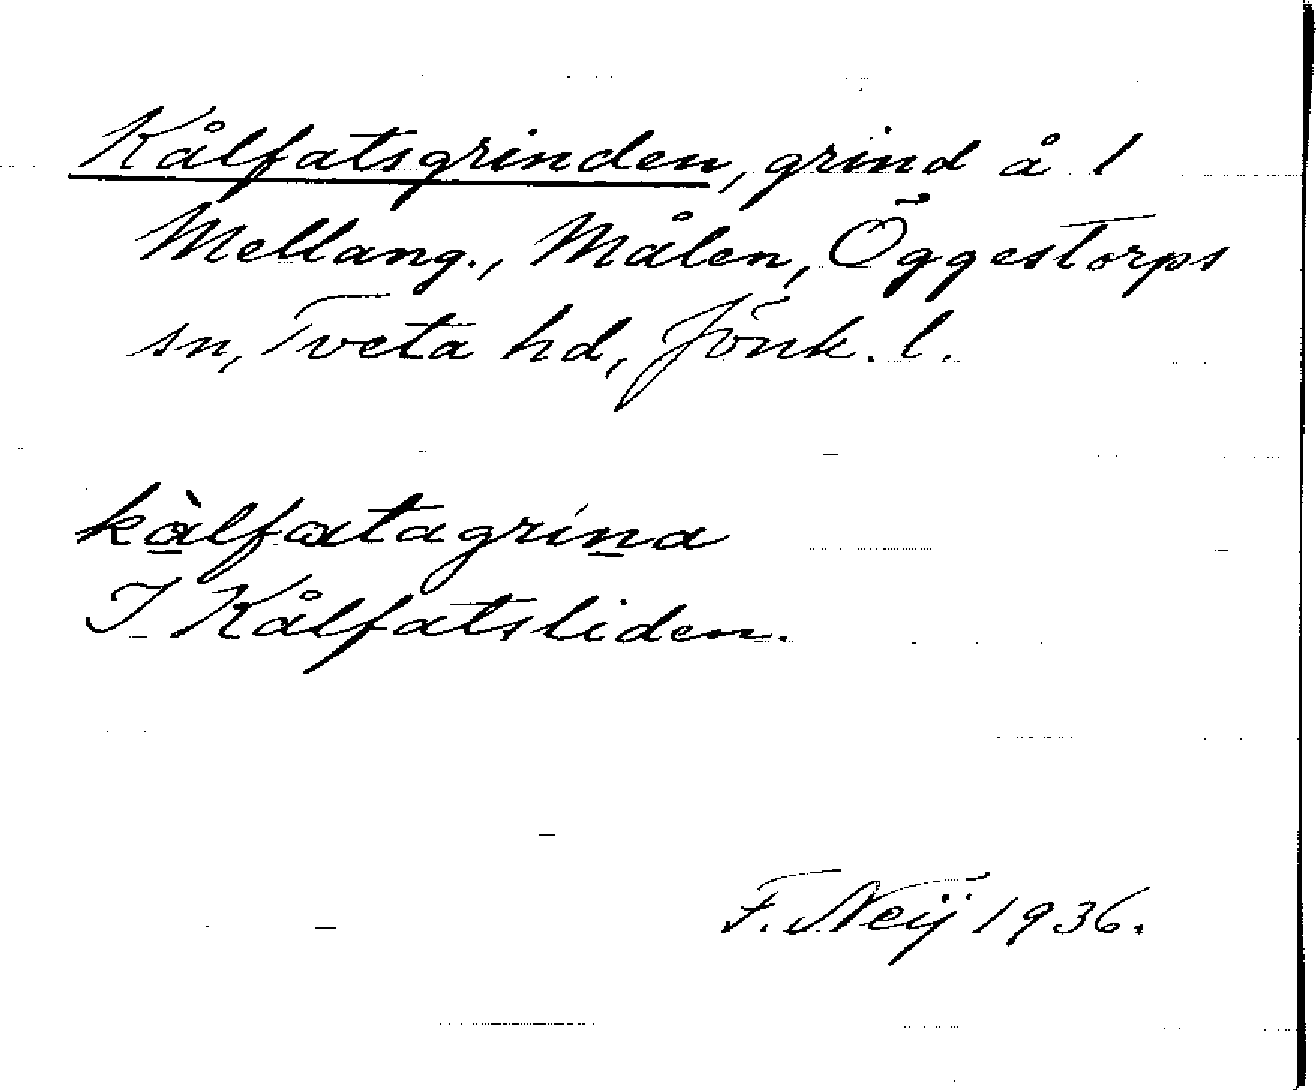 Kålfatsgrinden, grind å 1
Mellang., Målen, Öggestorps
sn, Tveta hd, Jönk. l.
kàlfatagrina
I Kålfatsliden.
F. Neij 1936.